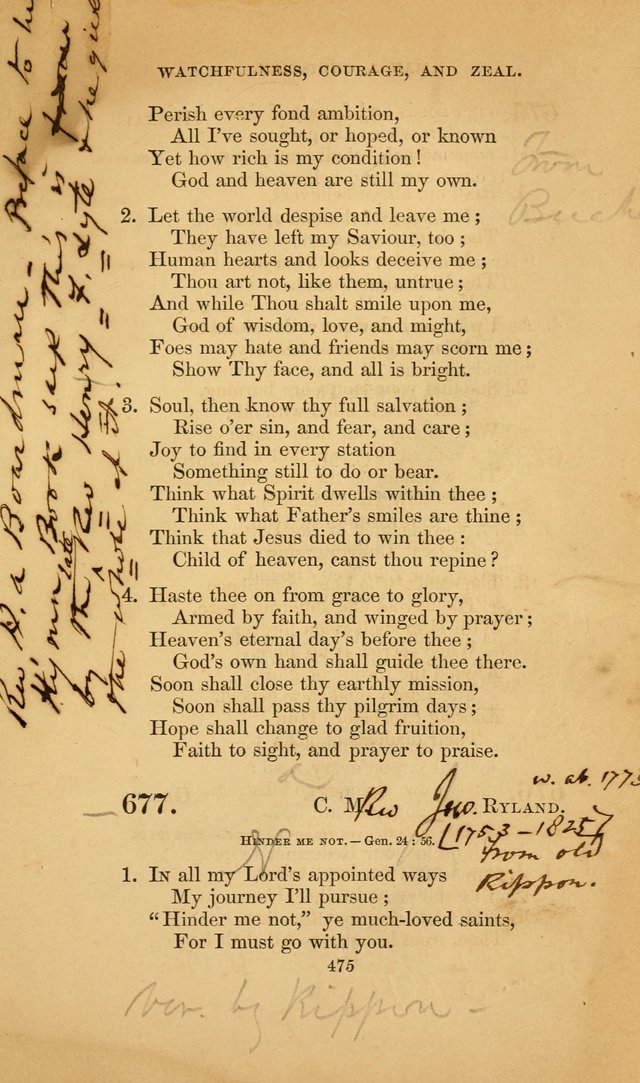 WATCHFULNESS, COURAGE, AND ZEAL.
Perish every fond ambition,
All I've sought, or hoped, or known
Yet how rich is my condition!
God and heaven are still my own.
From
Buck
2. Let the world despise and leave me;
They have left my Saviour, too;
Human hearts and looks deceive me;
Thou art not, like them, untrue;
And while Thou shalt smile upon me,
God of wisdom, love, and might,
Foes may hate and friends may scorn me;
Show Thy face, and all is bright.
3. Soul, then know thy full salvation;
Rise o'er sin, and fear, and care;
Joy to find in every station
Something still to do or bear.
Think what Spirit dwells within thee;
Think what Father's smiles are thine;
Think that Jesus died to win thee:
Child of heaven, canst thou repine?
4. Haste thee on from grace to glory,
Armed by faith, and winged by prayer;
Heaven's eternal day's before thee;
God's own hand shall guide thee there.
Soon shall close thy earthly mission,
Soon shall pass thy pilgrim days;
Hope shall change to glad fruition,
Faith to sight, and prayer to praise.
Rev H. a Boardman - Preface to
Hymn Book says this is
by the late Rev Henry F. Lyte & he
the whole of it.
w. ab. 1773
677. C. M. Rev Jno. RYLAND.
[1753-1825]
HINDER ME NOT.—Gen. 24:56.
from old
Rippon.
1. IN all my Lord's appointed ways
My journey I'll pursue;
"Hinder me not," ye much-loved saints,
For I must go with you.
475
Ver. by Rippon -